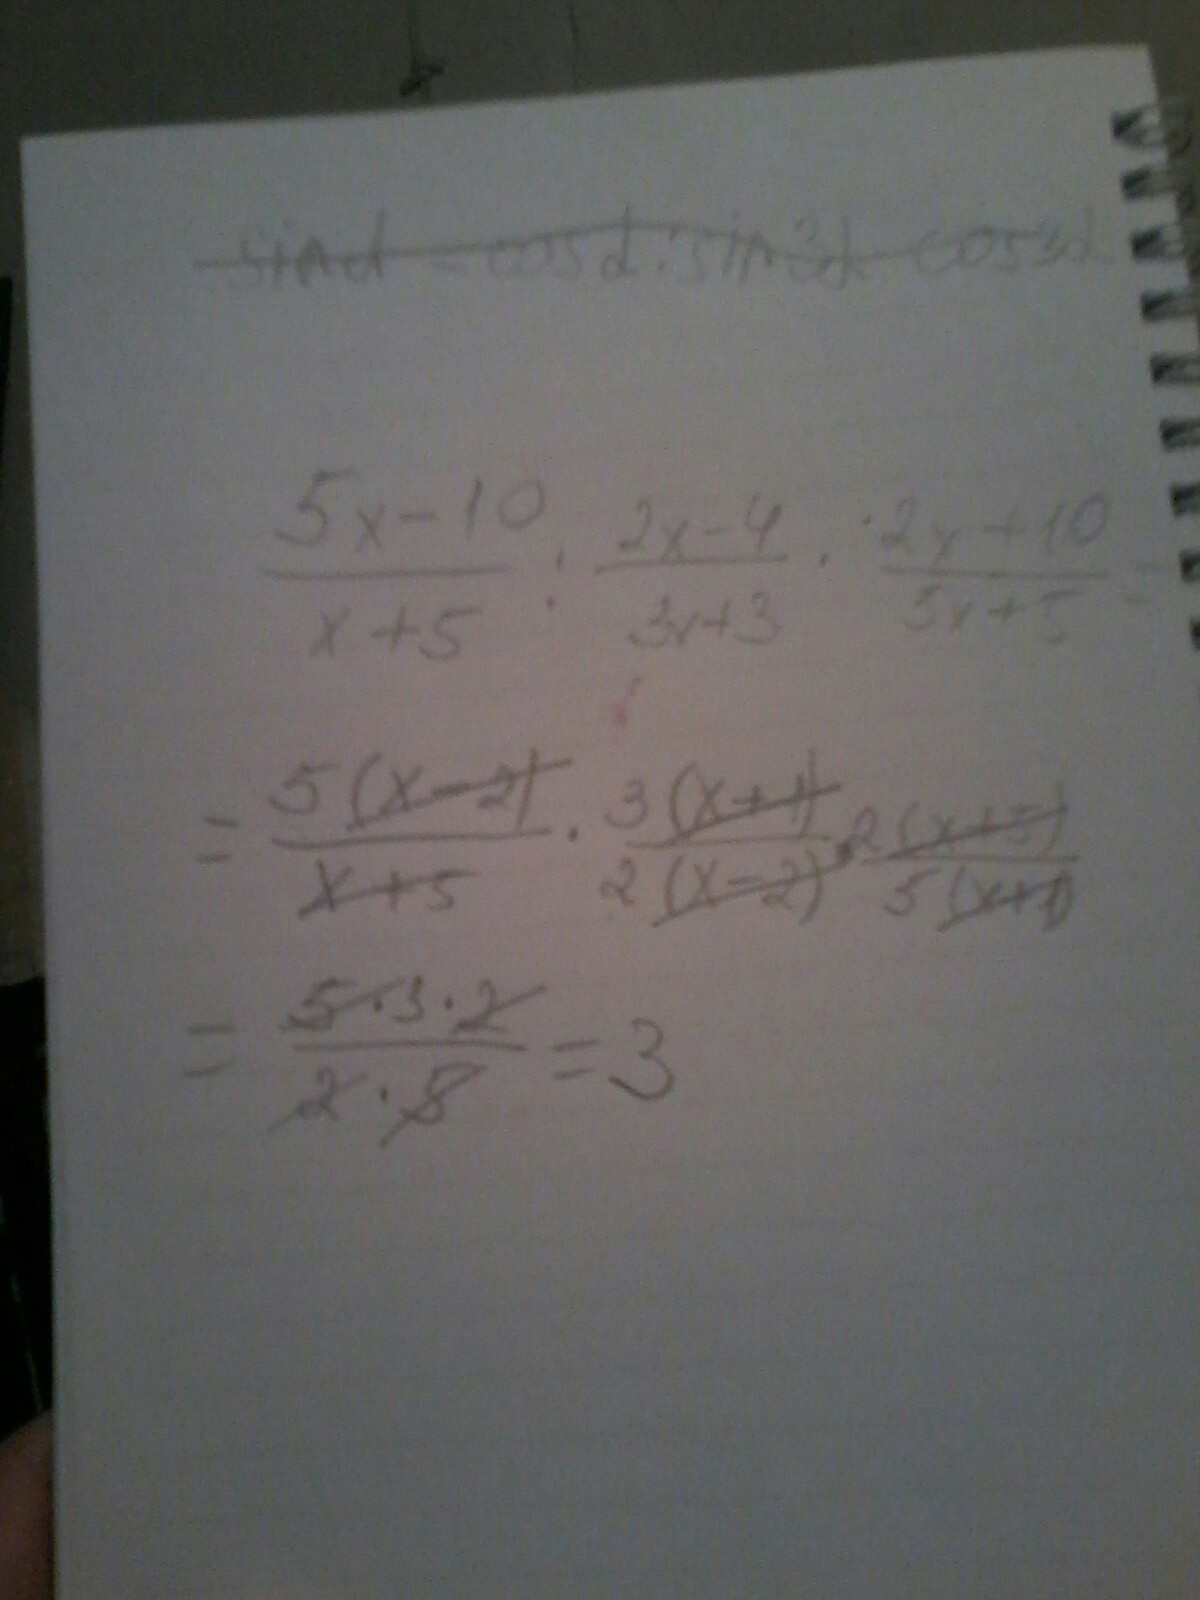 sinα - cosα : sin3α cos3α
(5x-10)/(x+5) : (2x-4)/(3x+3) · (2x+10)/(5x+5) =
= 5(x-2)/(x+5) · 3(x+1)/(2(x-2)) · 2(x+5)/(5(x+1))
= (5·3·2)/(2·5) = 3